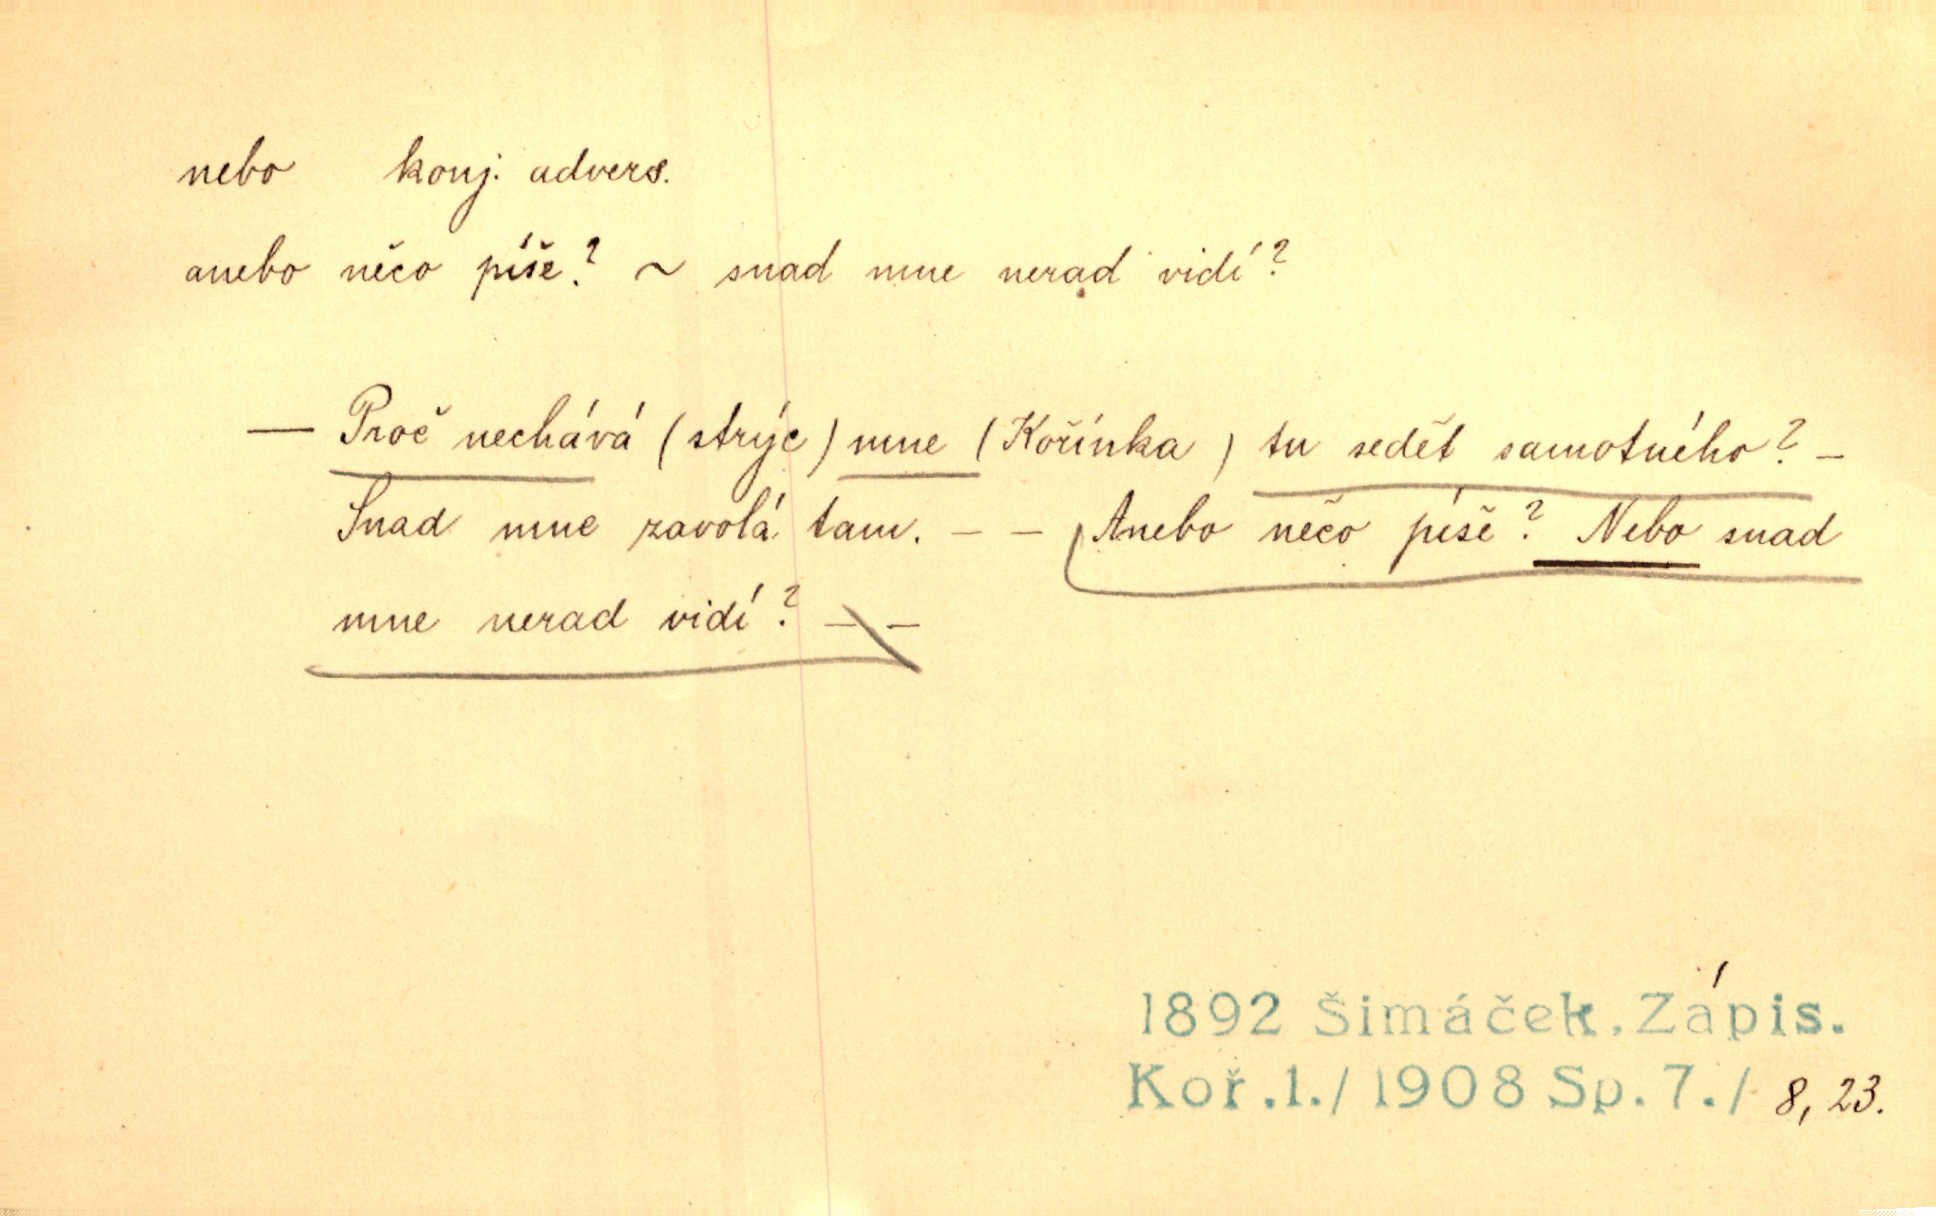 nebo konj. advers.
anebo něco píše? ~ snad mne nerad vidí?
— Proč nechává (strýc) mne (Kořínka) tu sedět samotného? –
Snad mne zavolá tam. – – Anebo něčo píše? Nebo snad
mne nerad vidí? – –
1892 Šimáček, Zápis.
Koř.1./1908 Sp.7./ 8, 23.